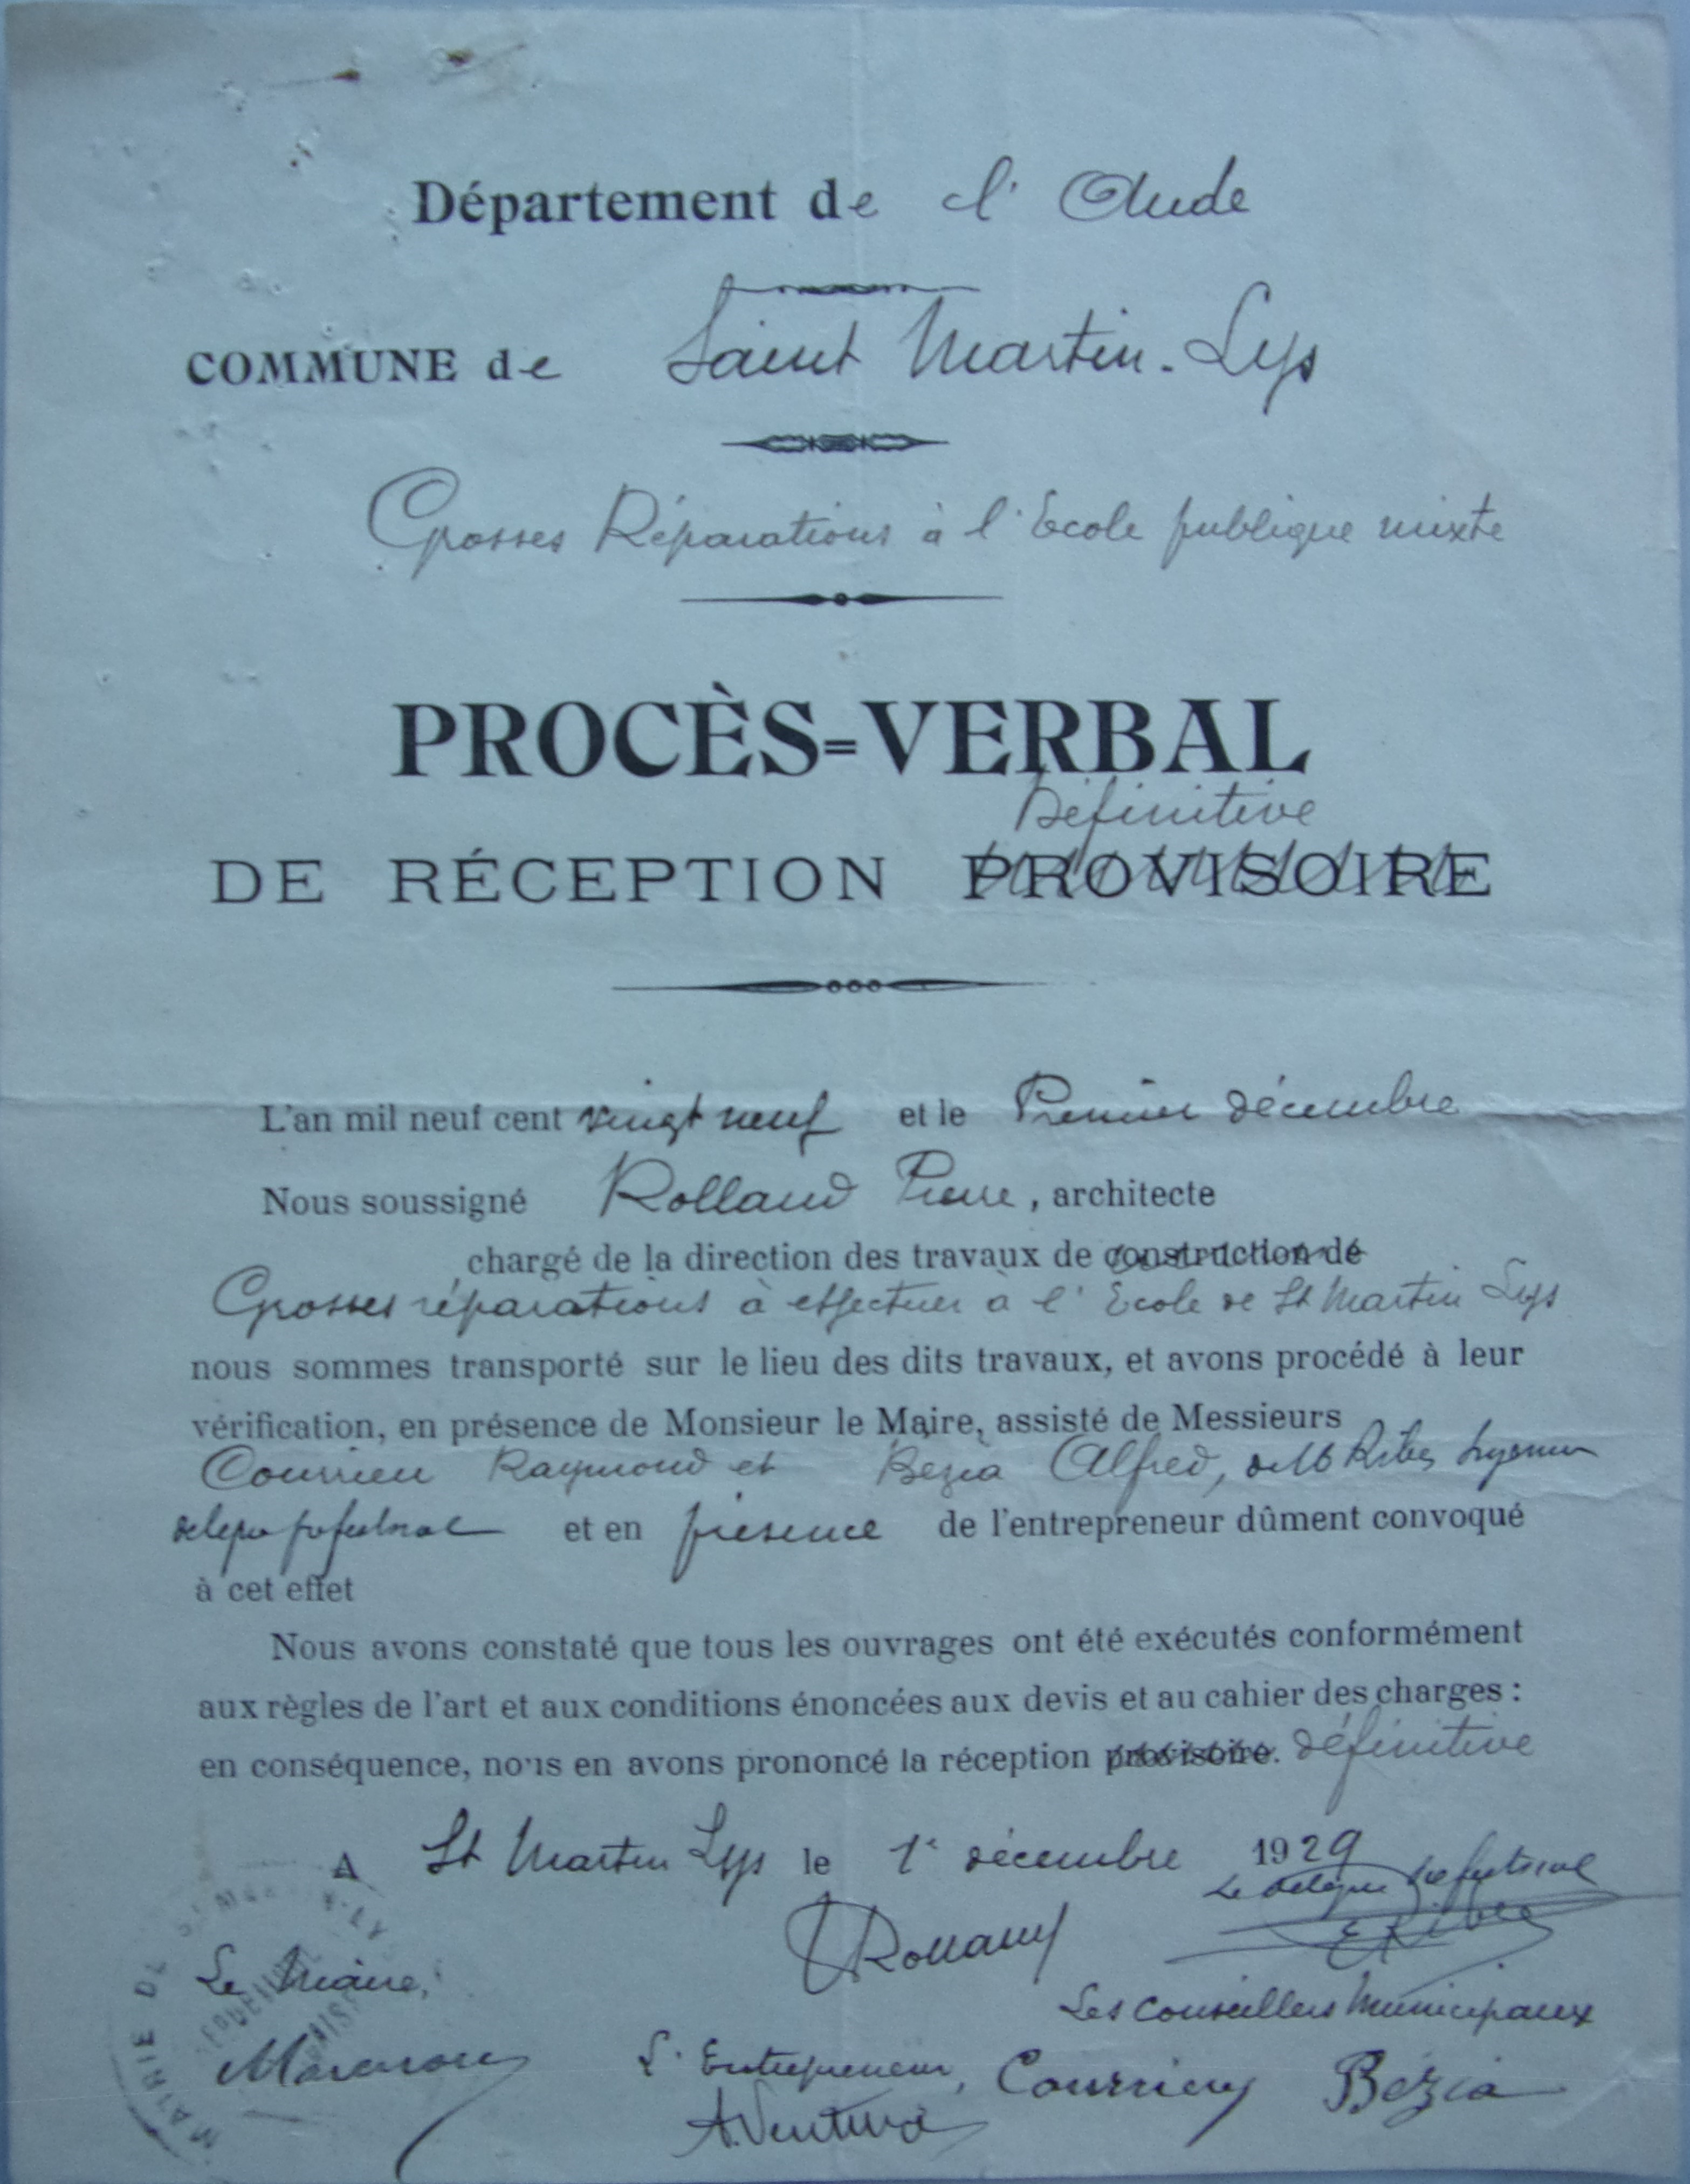 Département de l'Aude
COMMUNE de Saint Martin-Lys
Grosses Réparations à l'Ecole publique mixte
PROCÈS=VERBAL
Définitive
DE RÉCEPTION PROVISOIRE
L'an mil neuf cent vingt neuf et le Premier décembre
Nous soussigné Rolland Pierre, architecte
chargé de la direction des travaux de construction de
Grosses réparations à effectuer à l'Ecole de St Martin Lys
nous sommes transporté sur le lieu des dits travaux, et avons procédé à leur
vérification, en présence de Monsieur le Maire, assisté de Messieurs
Courrieu Raymond et Bézia Alfred, de M Ribes
et en présence de l'entrepreneur dûment convoqué
à cet effet
Nous avons constaté que tous les ouvrages ont été exécutés conformément
aux règles de l'art et aux conditions énoncées aux devis et au cahier des charges :
en conséquence, nous en avons prononcé la réception provisoire. définitive
A St Martin Lys le 1er décembre 1929
Le délégué préfectoral
Rolland
E Ribes
Le Maire,
Les conseillers Municipaux
L'Entrepreneur, Courrieu Bézia
A. Ventura
MAIRIE DE